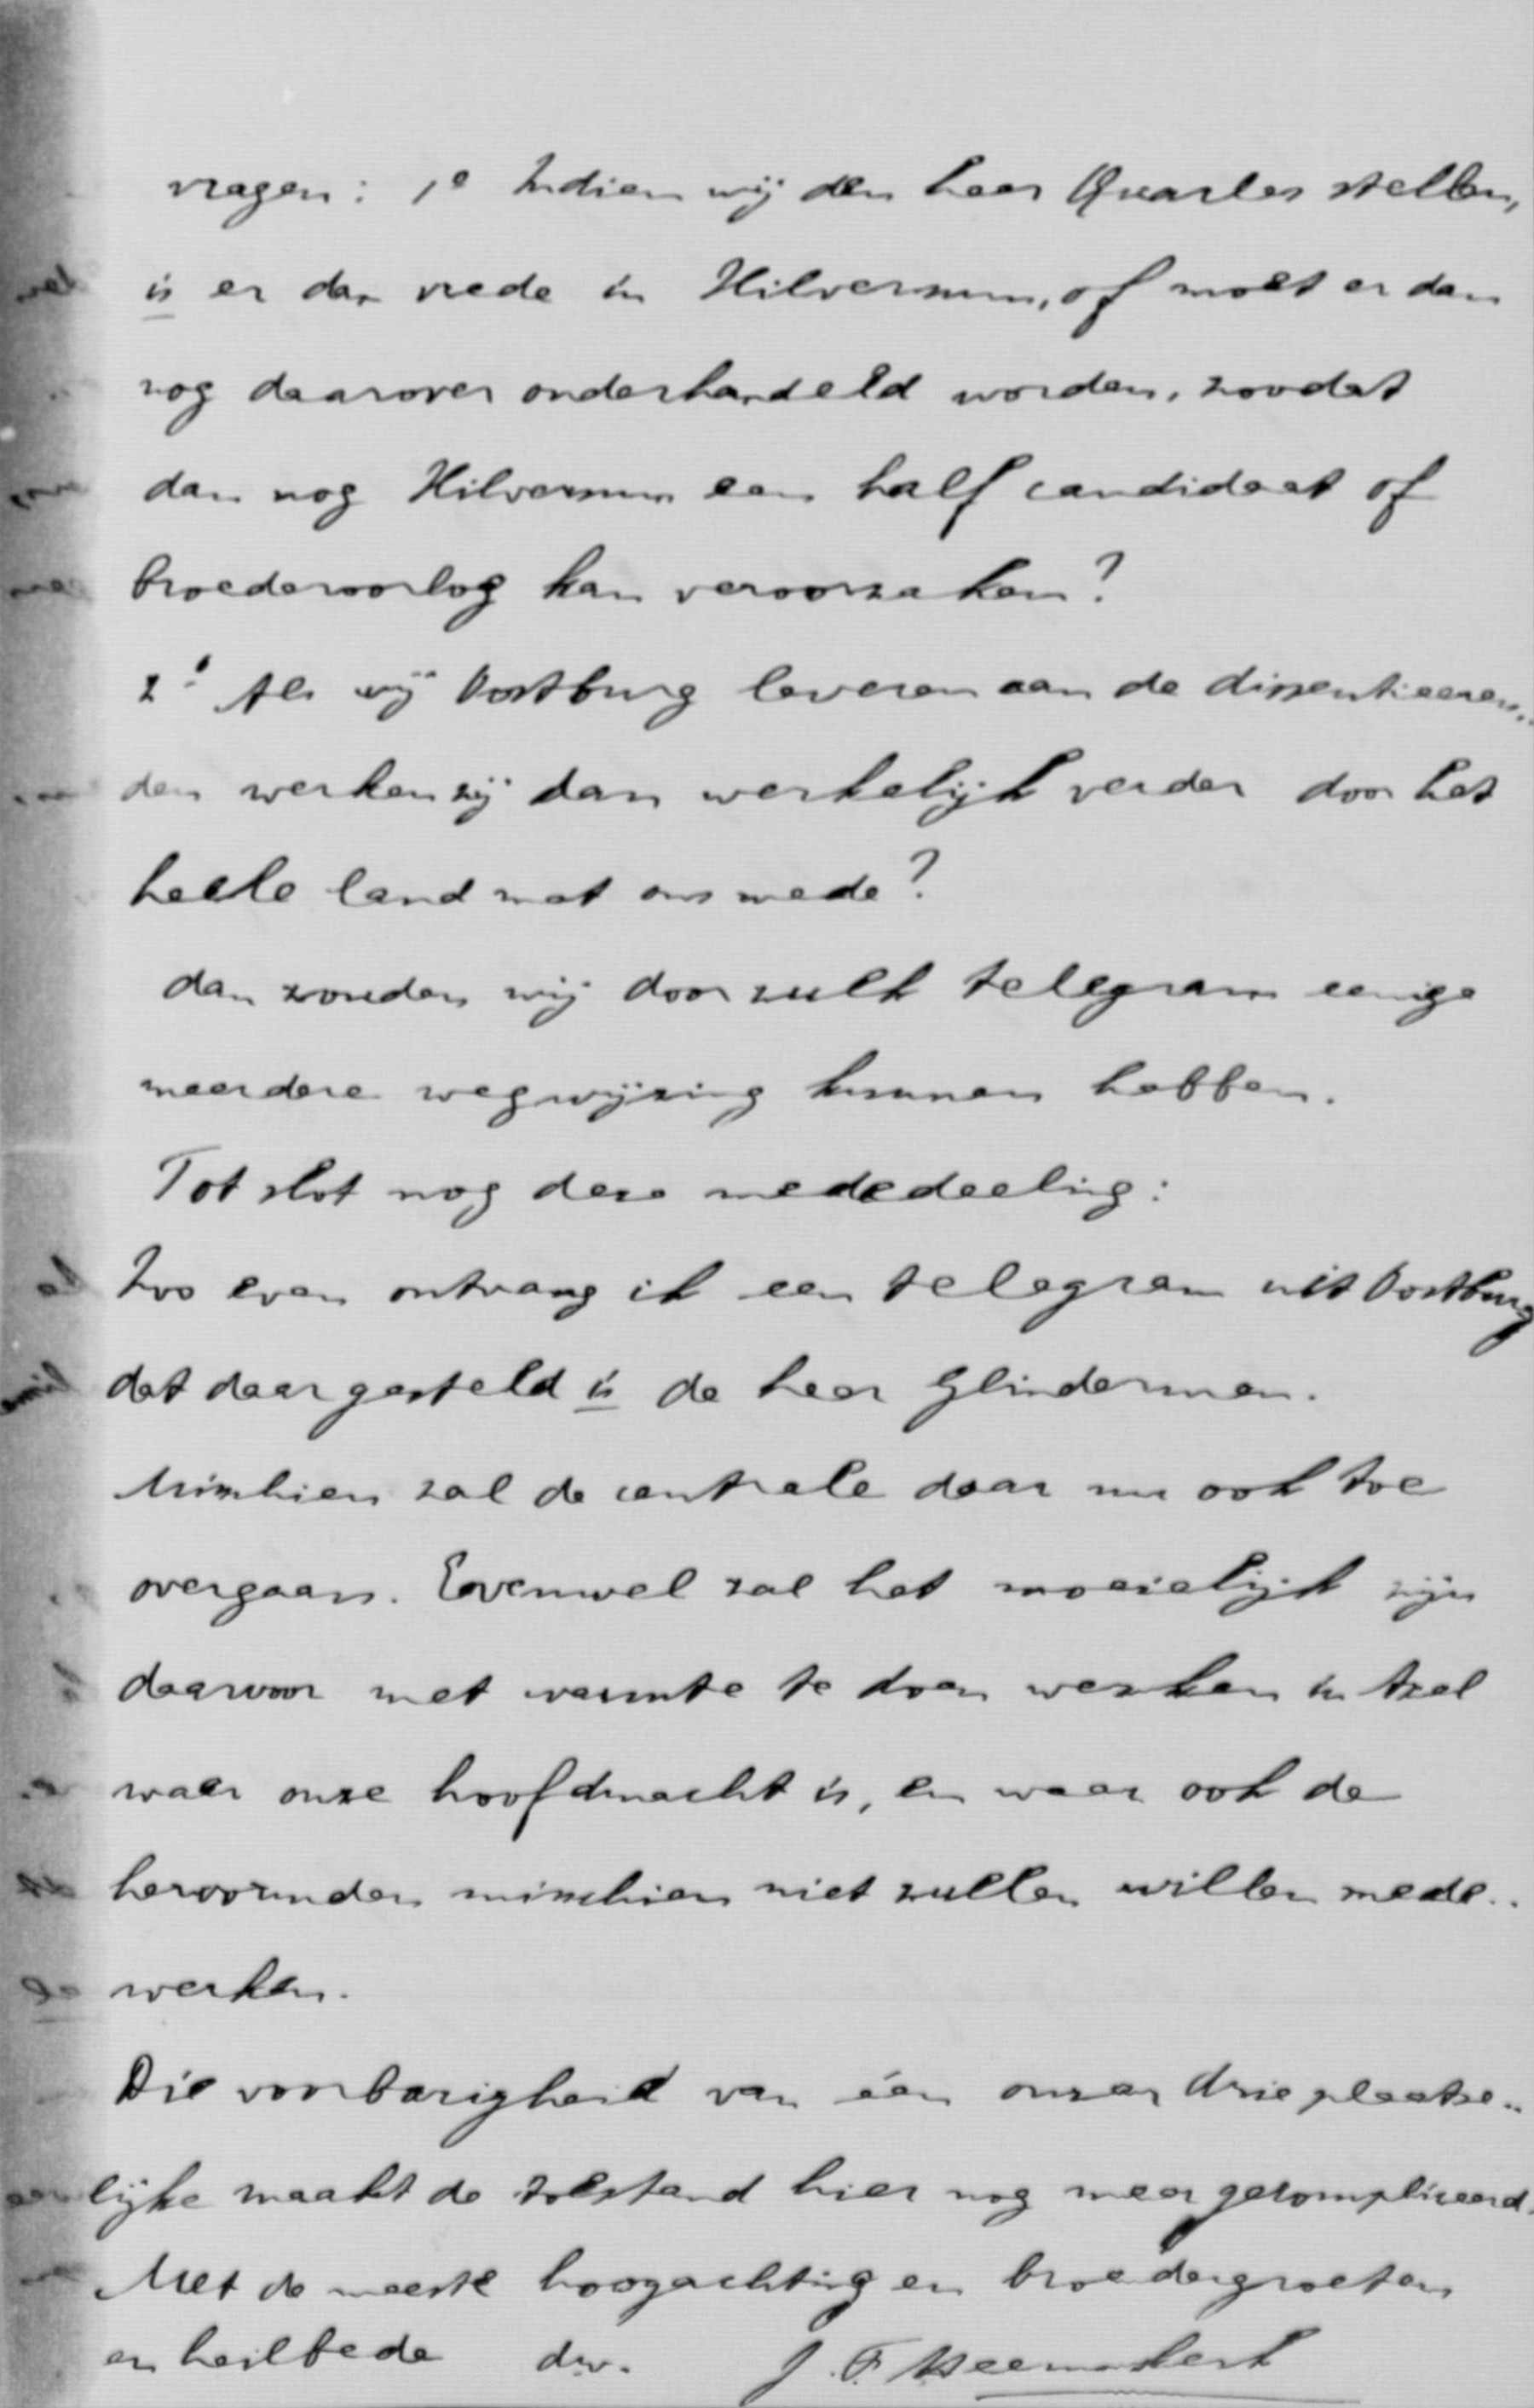 vragen: 1e Indien wij den heer Quarles stellen,
is er dan vrede in Hilversum, of moet er dan
nog daarover onderhandeld worden, zoodat
dan nog Hilversum een half candidaat of
broederoorlog kan veroorzaken?
2e Als wij Oostburg leveren aan de dissentieeren..
den werken zij dan werkelijk verder door het
heele land met ons mede?
dan zouden wij door zulk telegram eenige
meerdere wegwijzing kunnen hebben.
Tot slot nog deze mededeeling:
Zoo even ontvang ik een telegram uit Oostburg
dat daar gesteld is de heer Glinderman.
Misschien zal de centrale daar nu ook toe
overgaan. Evenwel zal het moeielijk zijn
daarvoor met warmte te doen werken in Axel
waar onze hoofdmacht is, en waar ook de
hervormden misschien niet zullen willen mede..
werken.
Die voorbarigheid van één onzer drie plaatse..
lijke maakt de toestand hier nog meer gecompliceerd.
Met de meeste hoogachting en broedergroeten
en heilbede dw. J. F. Heemskerk